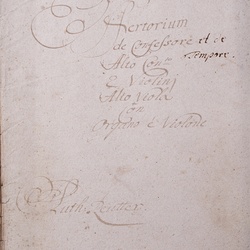 Offertorium
de Confessore et de
tempore.
Alto Conto
2 Violinj
Alto Viola
con
Organo è Violone
Auth: Reütter